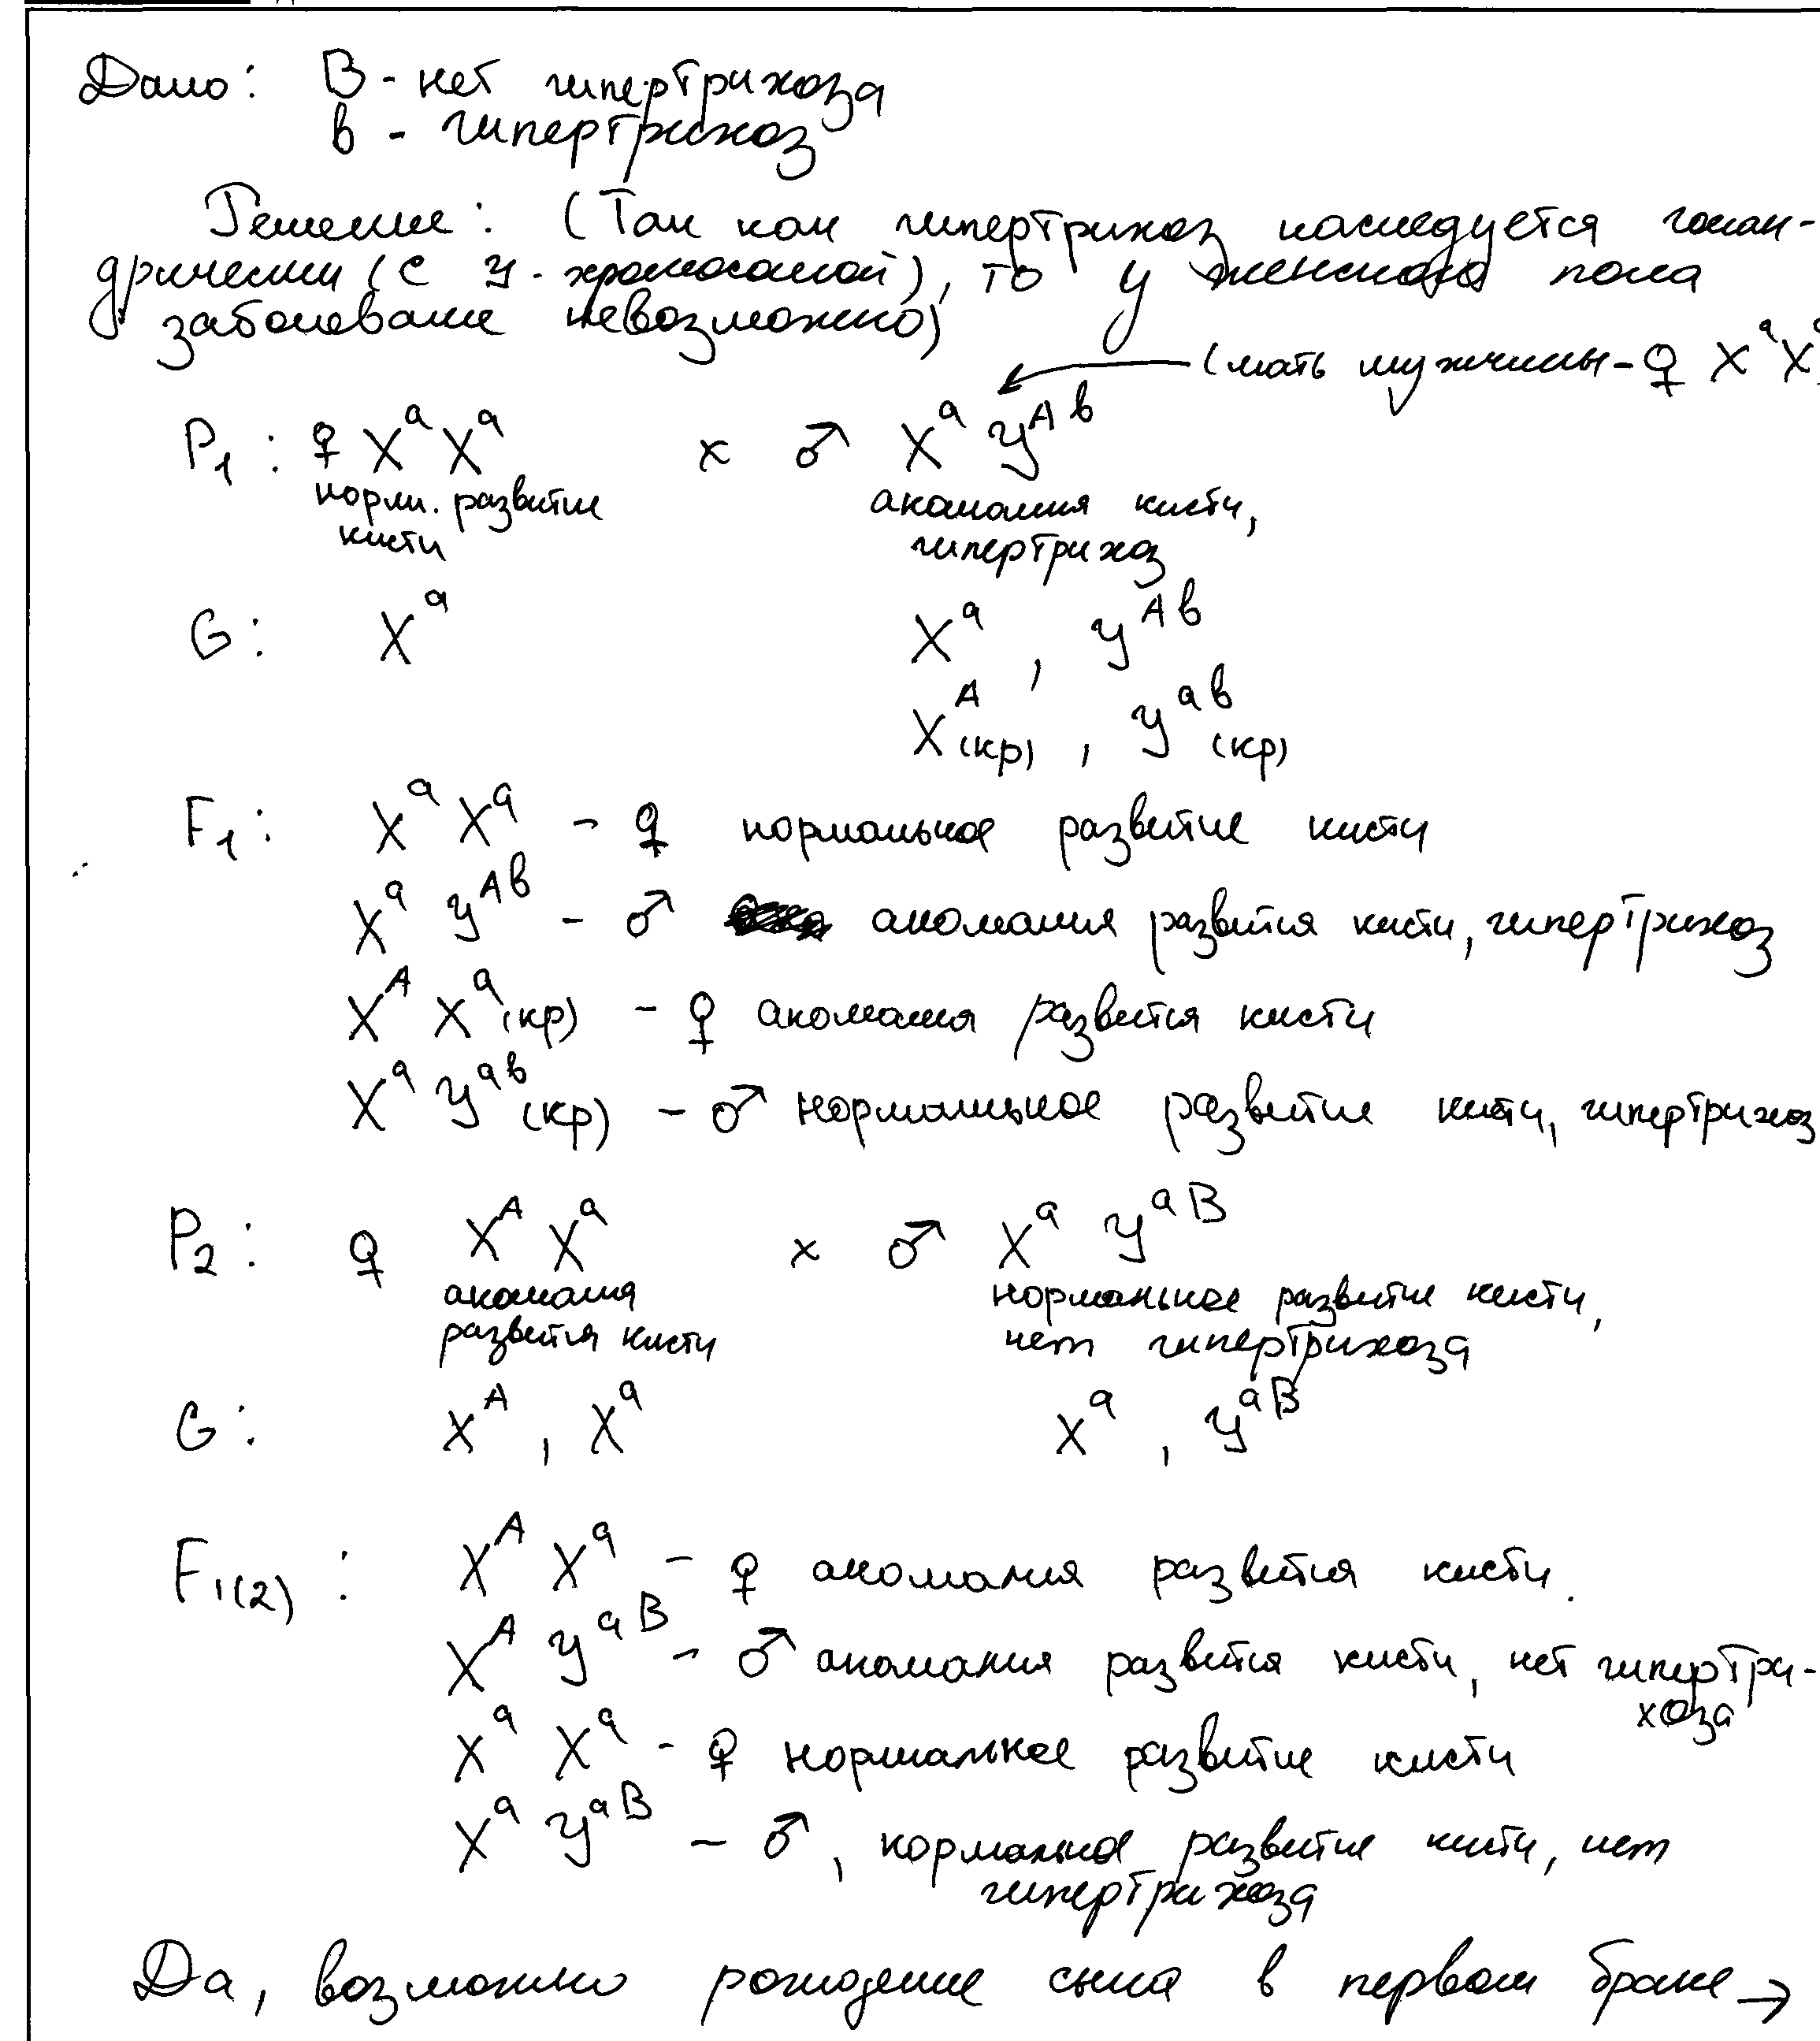 Дано: B - нет гипертрихоза
в - гипертрихоз
Решение: (Так как гипертрихоз наследуется голан-
дрически (с У-хромосомой), то у женского пола
заболевание невозможно)
(мать мужчины - ♀ XᵃX
P₁: ♀ XᵃXᵃ x ♂ XᵃУᴬᵇ
норм. развитие аномалия кисти,
кисти гипертрихоз
G: Xᵃ Xᵃ, Уᴬᵇ
Xᴬ(кр), Уᵃᵇ(кр)
F₁: XᵃXᵃ - ♀ нормальное развитие кисти
XᵃУᴬᵇ - ♂ аномалия развития кисти, гипертрихоз
XᴬXᵃ(кр) - ♀ аномалия развития кисти
XᵃУᵃᵇ(кр) - ♂ нормальное развитие кисти, гипертрихоз
P₂: ♀ XᴬXᵃ x ♂ XᵃУᵃᴮ
аномалия нормальное развитие кисти,
развития кисти нет гипертрихоза
G: Xᴬ, Xᵃ Xᵃ, Уᵃᴮ
F₁₍₂₎: XᴬXᵃ - ♀ аномалия развития кисти.
XᴬУᵃᴮ - ♂ аномалия развития кисти, нет гипертри-
хоза
XᵃXᵃ - ♀ нормальное развитие кисти
XᵃУᵃᴮ - ♂, нормальное развитие кисти, нет
гипертрихоза
Да, возможно рождение сына в первом браке →